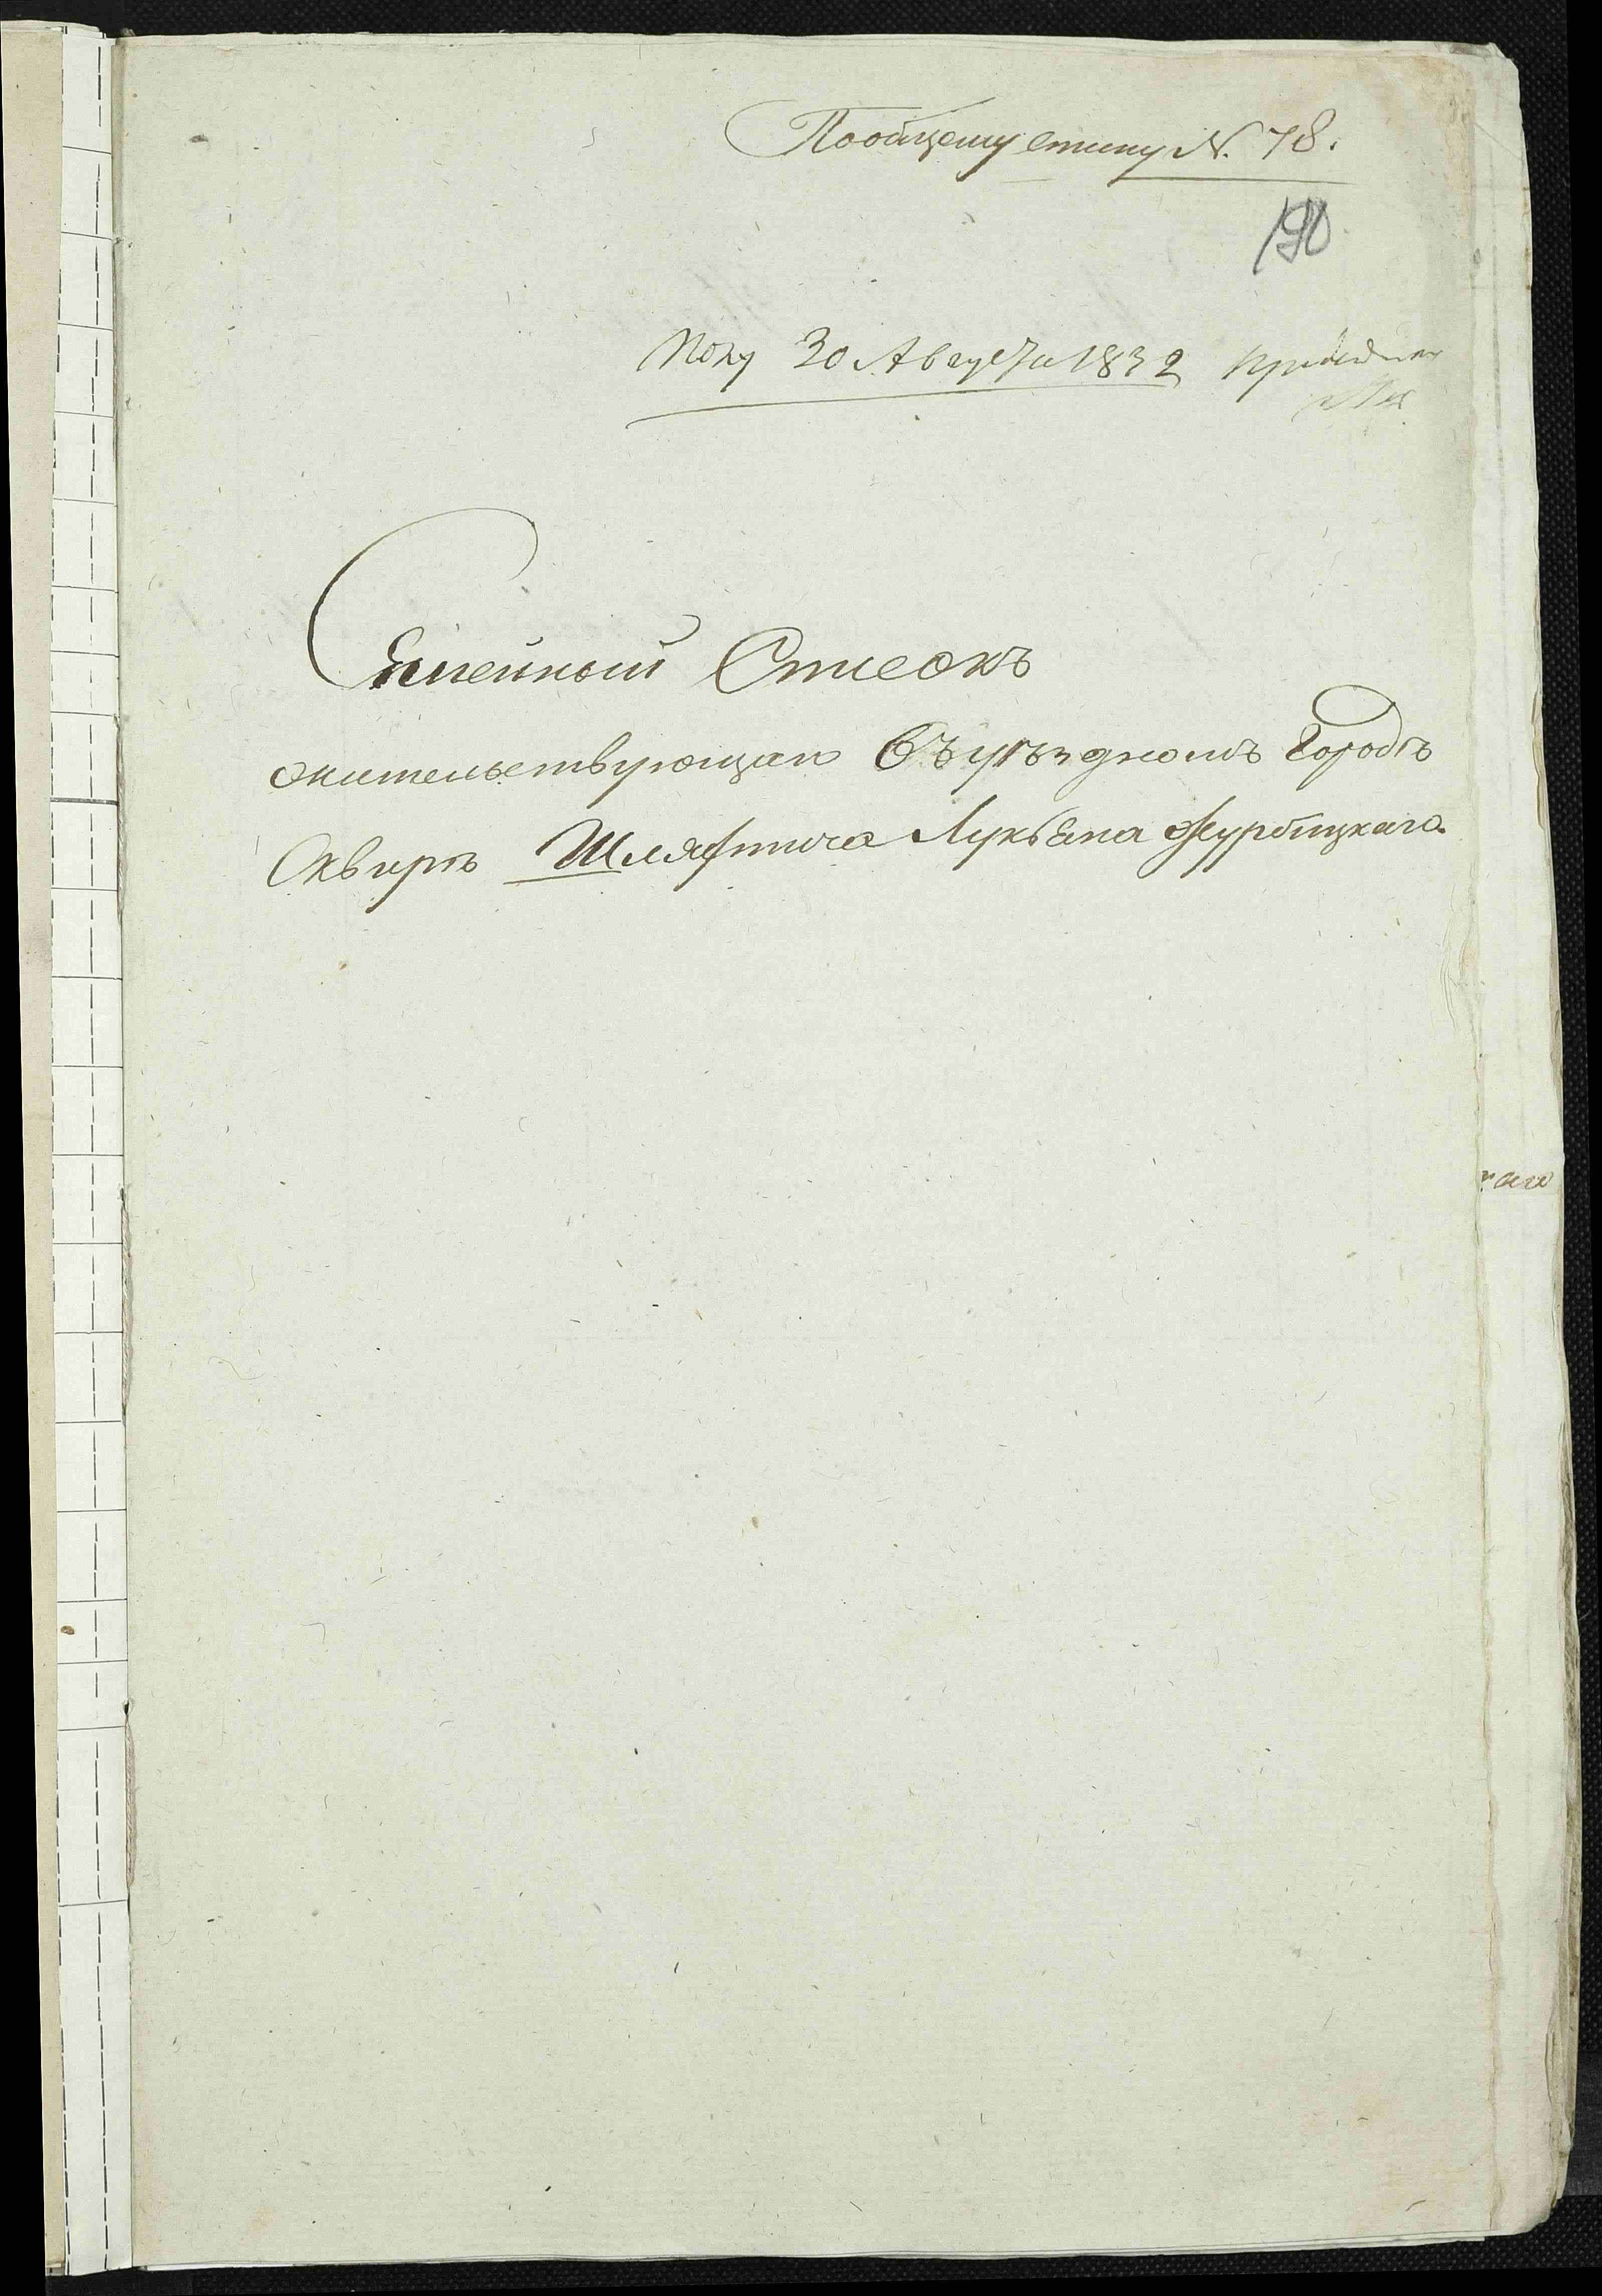 Пообщему списку N. 78.
190
Полу 30 Августа 1832
Семейный Список
жительствующаго Въуѣздномъ Городѣ
Сквирѣ Шляхтича Лукьяна Журбицкаго